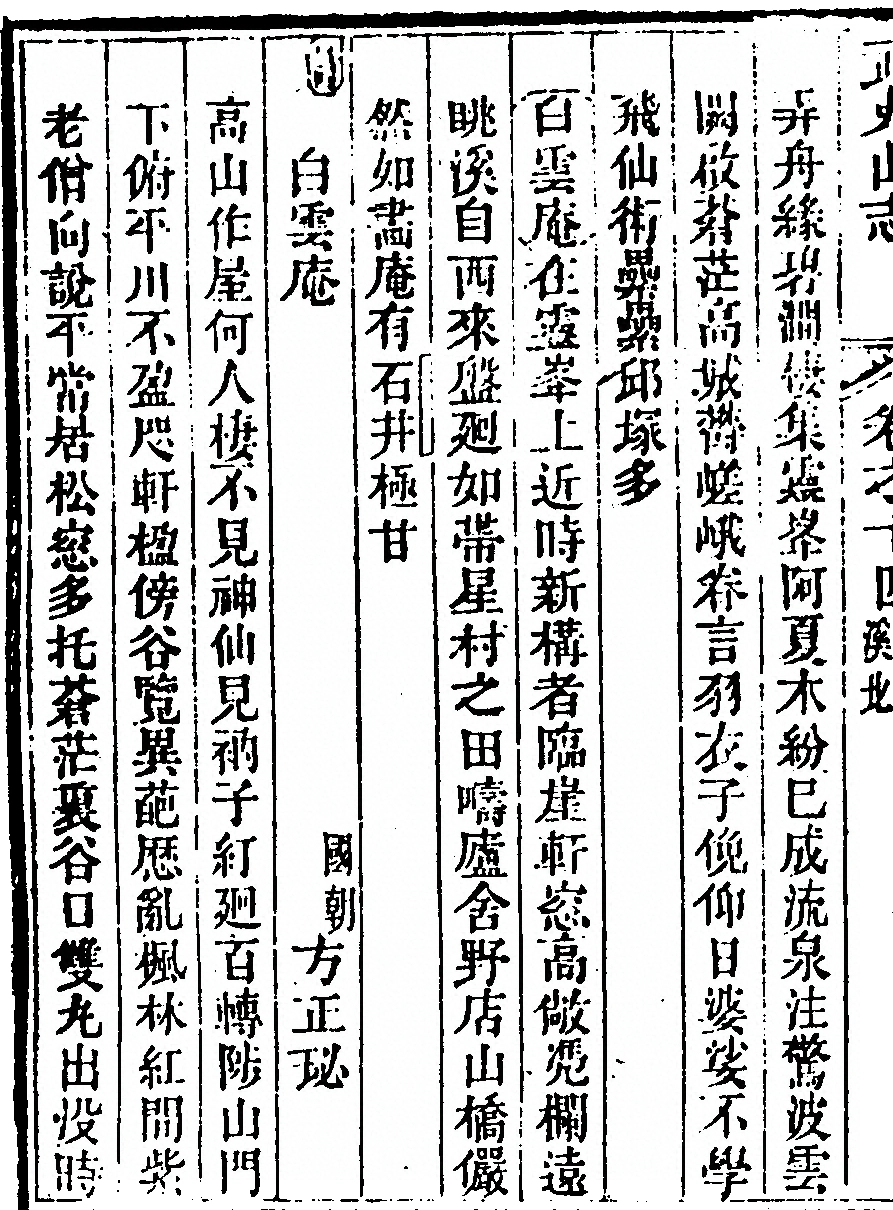 武夷山志 卷之十四 溪北
弄舟緣碧澗倭集靈峯阿夏木紛已成流泉注驚波雲
關啟蒼茫高城欝嵯峨眷言羽衣子俛仰日婆娑不學
飛仙術纍纍邱塚多
白雲庵在靈峯上近時新構者臨崖軒窓高敞凭欄遠
眺溪自西來盤廻如帶星村之田疇廬舍野店山橋儼
然如畫庵有石井極甘
白雲庵 國朝方正玭
高山作屋何人棲不見神仙見衲子紆廻百轉陟山門
下俯平川不盈咫軒楹傍谷覽異葩歷亂楓林紅間紫
老僧向說平常居松窓多托蒼茫裏谷口雙丸出没時